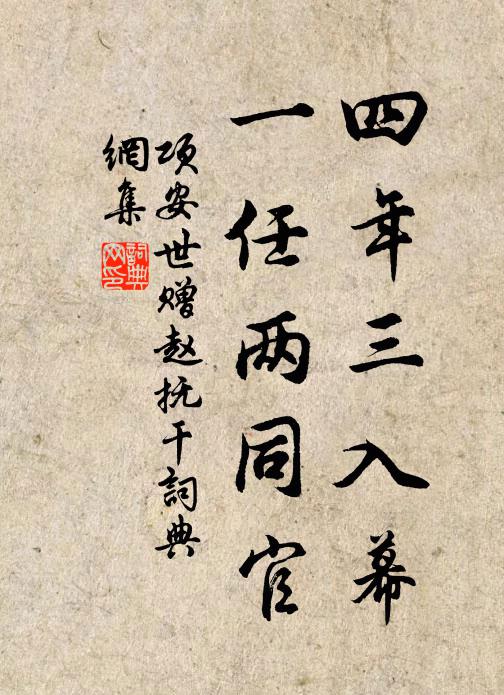 四年三入幕
一任两同官
项安世赠赵抚干詞典
網集
詞典
网印